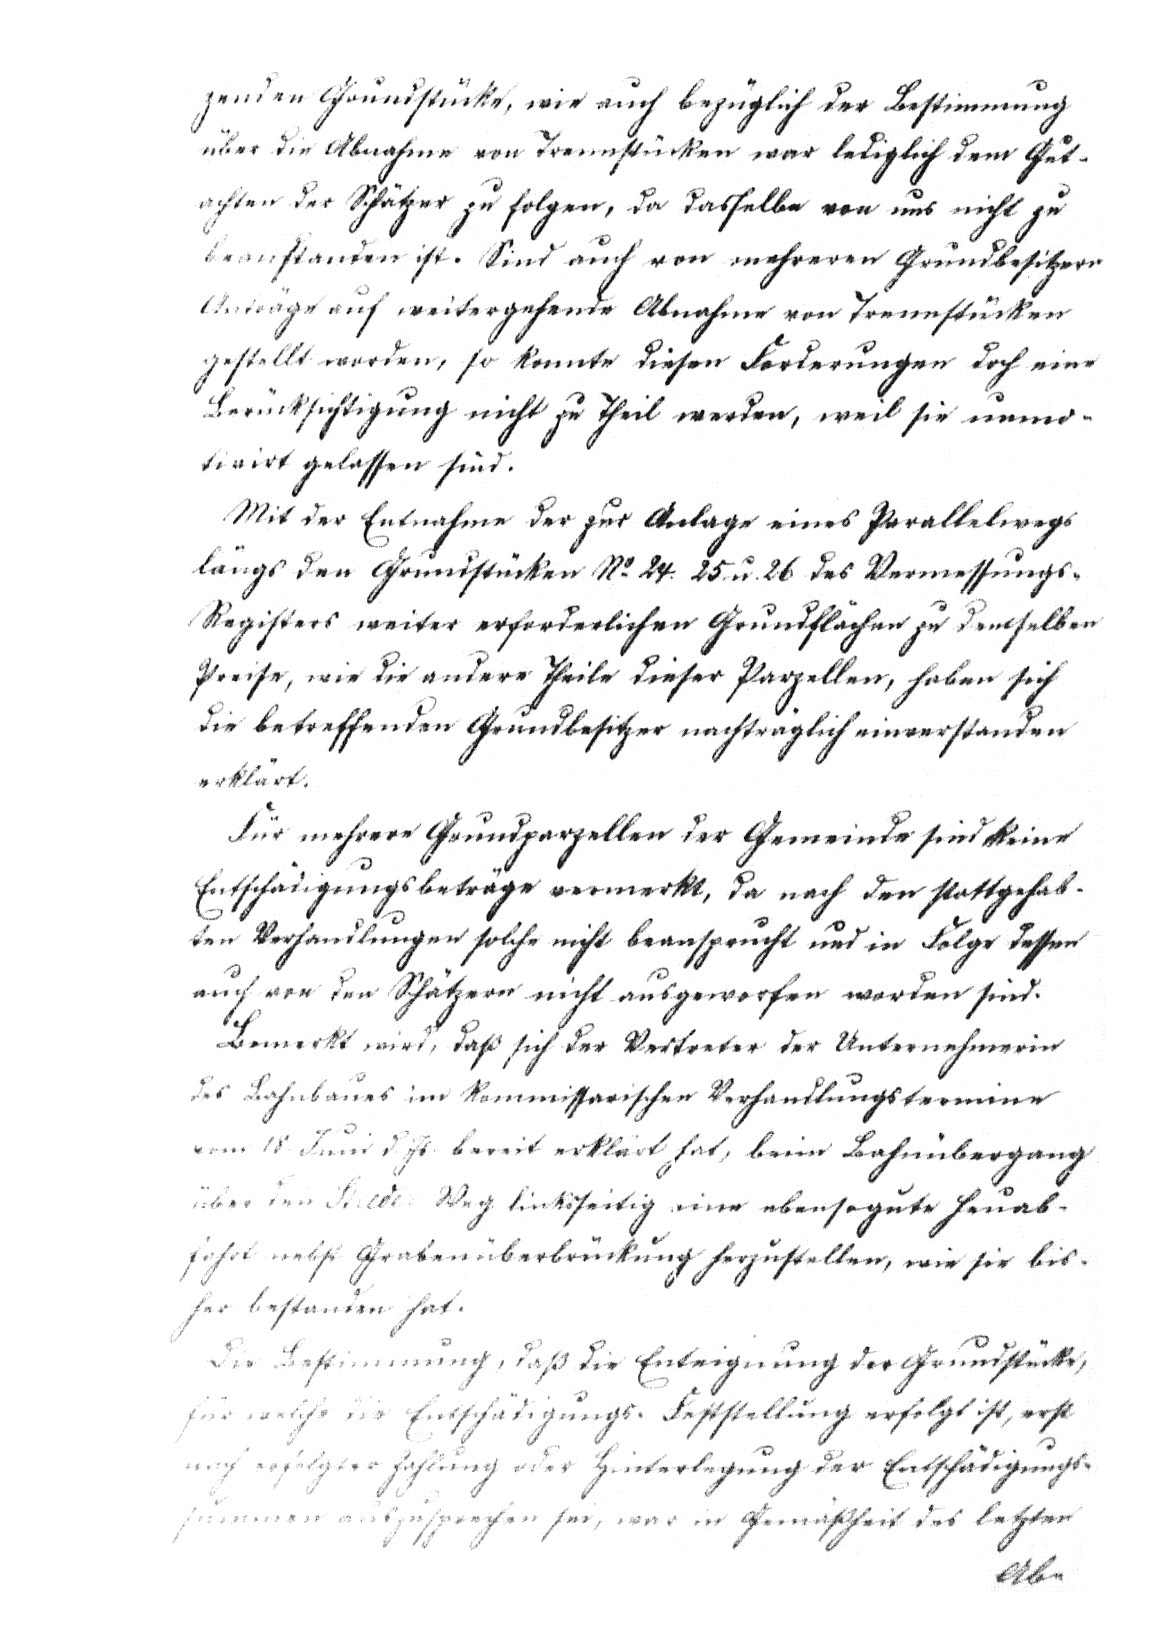 zenden Grundstücke, wie auch bezüglich der Bestimmung
über die Abnahme von Trennstücken war lediglich dem Gut-
achten der Schätzer zu folgen, da dasselbe von uns nicht zu
beanstanden ist. Sind auch von mehreren Grundbesitzern
Anträge auf weitergehende Abnahme von Trennstücken
gestellt worden, so konnte diesen Forderungen doch eine
Berücksichtigung nicht zu Theil werden, weil sie unmo-
tivirt gelassen sind.
Mit der Entnahme der zur Anlage eines Parallelwegs
längs den Grundstücken No. 24. 25 u. 26 des Vermessungs-
Registers weiter erforderlichen Grundflächen zu demselben
Preise, wie die andere Theile dieser Parzellen, haben sich
die betreffenden Grundbesitzer nachträglich einverstanden
erklärt.
Für mehrere Grundparzellen der Gemeinde sind keine
Entschädigungsbeträge vermerkt, da nach den stattgehab-
ten Verhandlungen solche nicht beansprucht und in Folge dessen
auch von den Schätzern nicht ausgeworfen worden sind.
Bemerkt wird, daß sich der Vertreter der Unternehmerin
des Bahnbaues im kommissarischen Verhandlungstermine
vom 18. Juni d. Js. bereit erklärt hat, beim Bahnübergang
über den Weg linksseitig eine ebensogute Heuab-
fahrt nebst Grabenüberbrückung herzustellen, wie sie bis-
her bestanden hat.
Die Bestimmung, daß die Enteignung der Grundstücke,
für welche die Entschädigungs-Feststellung erfolgt ist, erst
nach erfolgter Zahlung oder Hinterlegung der Entschädigungs-
summen auszusprechen sei, war in Gemäßheit des letzten
Ab-